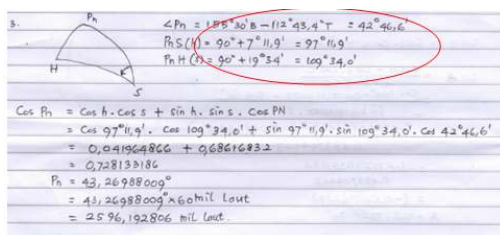 3.
Pn
H
S
∠Pn = 155°30'B - 112°43,4'T = 42°46,6'
Pn S(h) = 90° + 7°11,9' = 97°11,9'
Pn H (s) = 90° + 19°34' = 109°34,0'
Cos Pn = Cos h . Cos s + sin h . sin s . Cos PN
= Cos 97°11,9' . Cos 109°34,0' + sin 97°11,9' . sin 109°34,0' . Cos 42°46,6'
= 0,041964866 + 0,68616832
= 0,728133186
Pn = 43,26988009°
= 43,26988009° x 60 mil Laut
= 2596,192806 mil Laut.